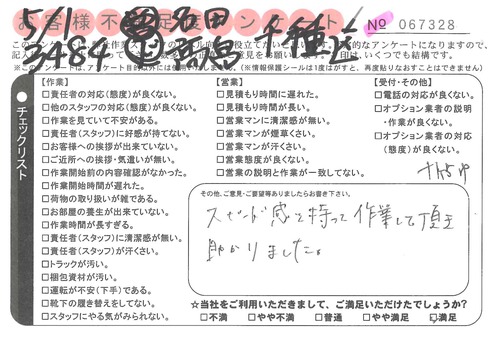 お客様不満足度アンケート
№ 067328
5/1 ㊢ 名田 千種送
3484 高島
※このアンケートは、アンケート目的以外には使用されません。(※情報保護シールは1度がすと、再度粘りなおすことはできません)
チェックリスト
【作業】
□責任者の対応(態度)が良くない。
□他のスタッフの対応(態度)が良くない。
□作業を見ていて不安がある。
□責任者(スタッフ)に好感が持てない。
□お客様への挨拶が出来ていない。
□ご近所への挨拶・気遣いが無い。
□作業開始前の内容確認がなかった。
□作業開始時間が遅れた。
□荷物の取り扱いが雑である。
□お部屋の養生が出来ていない。
□作業時間が長すぎる。
□責任者(スタッフ)に清潔感が無い。
□責任者(スタッフ)が汗くさい。
□トラックが汚い。
□梱包資材が汚い。
□運転が不安(下手)である。
□靴下の履き替えをしてない。
□スタッフにやる気がみられない。
【営業】
□見積もり時間に遅れた。
□見積もり時間が長い。
□営業マンに清潔感が無い。
□営業マンが煙草くさい。
□営業マンが汗くさい。
□営業態度が良くない。
□営業の説明と作業が一致してない。
【受付・その他】
□電話の対応が良くない。
□オプション業者の説明
・作業が良くない。
□オプション業者の対応
(態度)が良くない。
その他、ご意見・ご要望等ありましたらお書き下さい。
スピード感を持って作業して頂き
助かりました。
☆当社をご利用いただきまして、ご満足いただけたでしょうか?
□不満 □やや不満 □普通 □やや満足 ☑満足